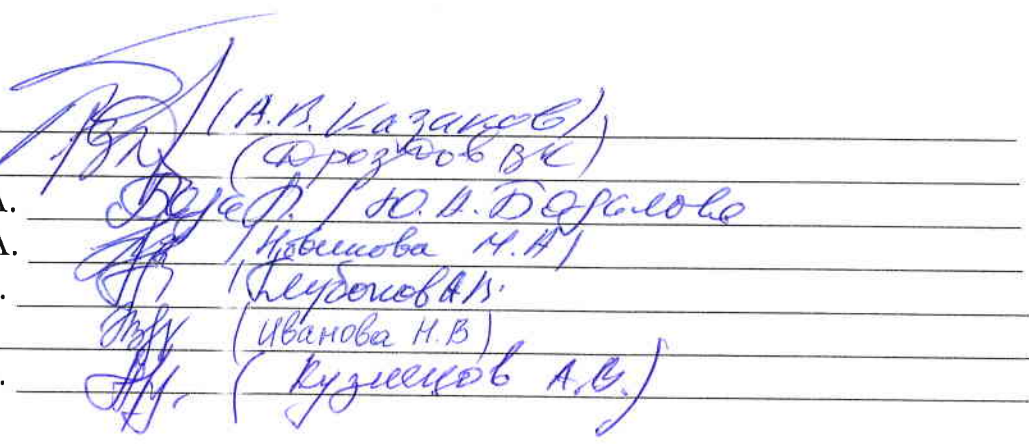 (А.В. Казаков)
(Дроздов ВК)
А. / Ю.А. Бадалова
А. (Новикова М.А)
. (Глубоков А.В.
(Иванова Н.В)
. (Кузнецов А.Ю.)